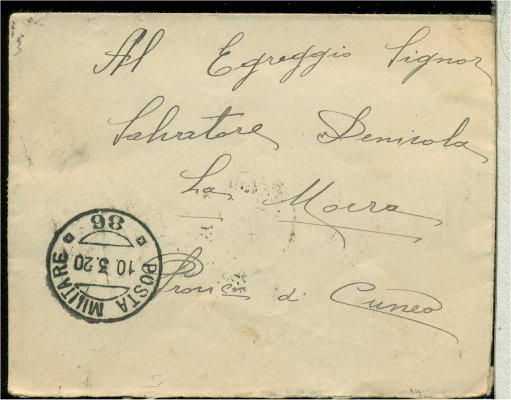 Al Egreggio Signor
Salvatore Denicola
La Morra
Provi cia di Cuneo
POSTA MILITARE
10.3.20
86